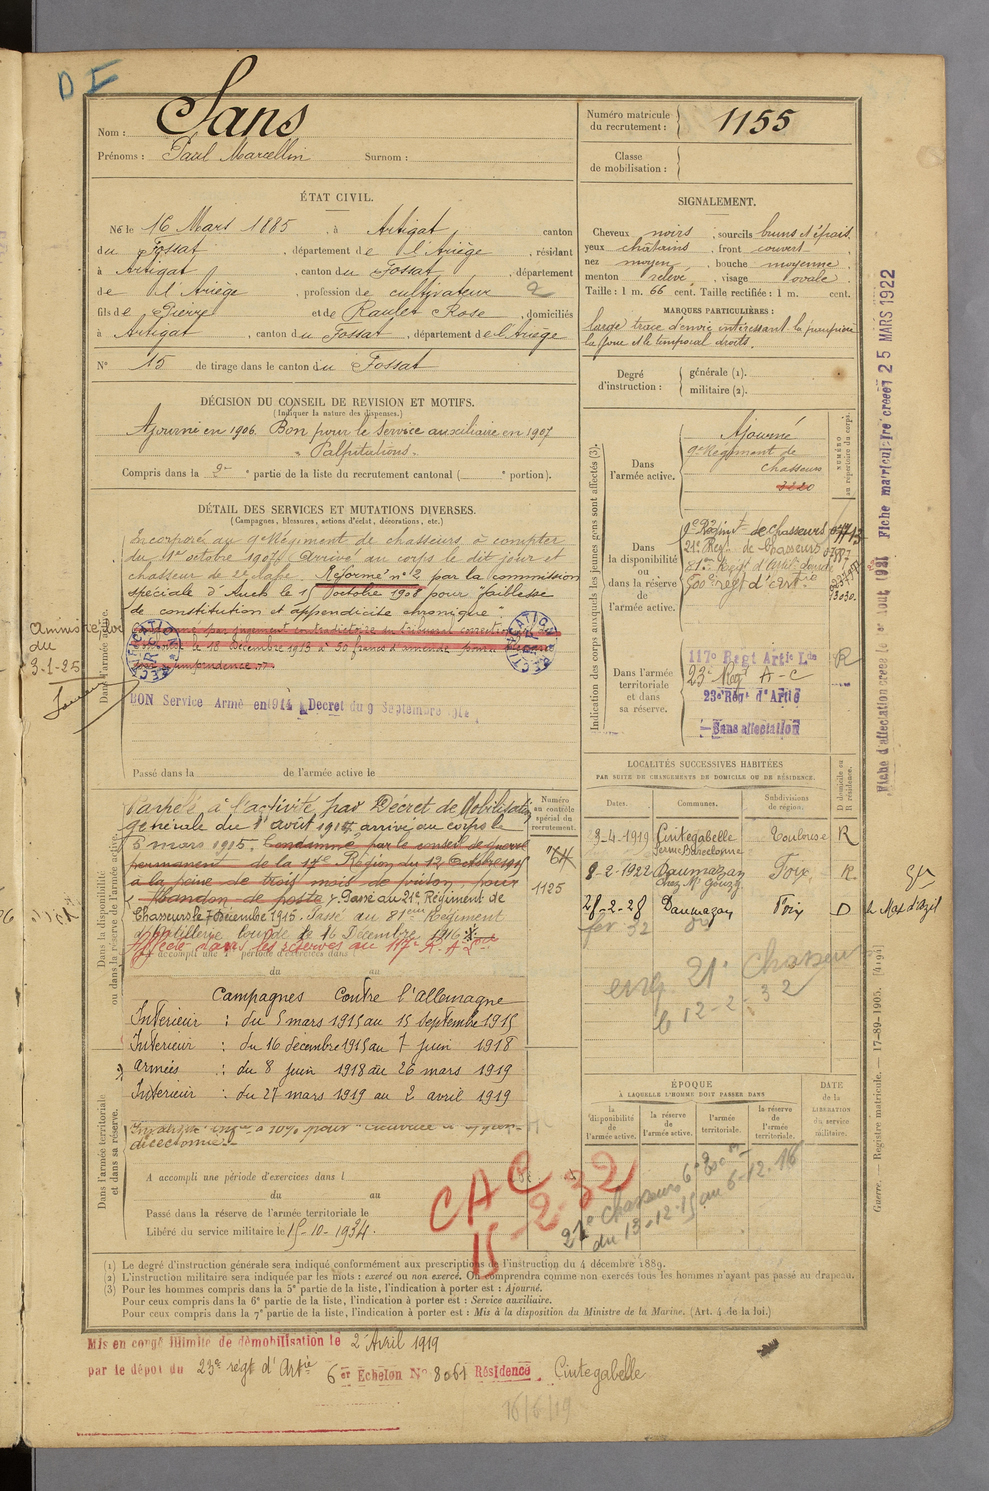 D I
Nom : Sans
Prénoms : Paul Marcellin Surnom :
Numéro matricule du recrutement : 1155
Classe de mobilisation :
ÉTAT CIVIL.
Né le 16 Mars 1885, à Artigat canton
du Fossat, département de l'Ariège, résidant
à Artigat, canton du Fossat, département
de l'Ariège, profession de cultivateur 2
fils de Pierre et de Raulet Rose, domiciliés
à Artigat, canton du Fossat, département de l'Ariège
N° 15 de tirage dans le canton du Fossat
SIGNALEMENT.
Cheveux noirs, sourcils bruns et épais
yeux châtains, front couvert
nez moyen, bouche moyenne
menton relevé, visage ovale
Taille : 1 m. 66 cent. Taille rectifiée : 1 m. cent.
MARQUES PARTICULIÈRES :
large trace d'envie intéressant la paupière
la joue et le temporal droits.
Degré d'instruction : générale (1).
militaire (2).
DÉCISION DU CONSEIL DE REVISION ET MOTIFS.
(Indiquer la nature des dispenses.)
Ajourné en 1906. Bon pour le Service auxiliaire en 1907
"Palpitations"
Compris dans la 2e partie de la liste du recrutement cantonal ( e portion).
DÉTAIL DES SERVICES ET MUTATIONS DIVERSES.
(Campagnes, blessures, actions d'éclat, décorations, etc.)
Dans l'armée active.
Incorporé au 9e Régiment de chasseurs à compter
du 1er octobre 1907. Arrivé au corps le dit jour et
chasseur de 2e classe. Réformé n° 2 par la commission
spéciale d'Auch le 15 octobre 1908 pour "faiblesse
de constitution et appendicite chronique"
par jugement contradictoire du tribunal correctionnel
le 18 Décembre 1913 à 50 francs d'amende pour
par imprudence
RECTIFICATION
RECTIFICATION
Amnistie loi
du
3-1-25
BON Service Armé en 1914 Décret du 9 Septembre 1914
Passé dans la de l'armée active le
Indication des corps auxquels les jeunes gens sont affectés (3).
NUMÉRO au répertoire du corps.
Dans l'armée active.
Ajourné
9e Régiment de
chasseurs
3220
Dans la disponibilité ou dans la réserve de l'armée active.
9e Régimt de chasseurs
21e Reg. de Chasseurs
Dans l'armée territoriale et dans sa réserve.
117e Regt Artie Lde R
23e Reg. A-C
23e Rég. d'Artie
Sans affectation
Fiche d'affectation créée le août 1921 Fiche matriculaire créée 25 MARS 1922
Dans la disponibilité ou dans la réserve de l'armée active.
Numéro au contrôle spécial du recrutement.
Rappelé à l'activité par Décret de Mobilisation
générale du 1er août 1914, arrivé au corps le
5 mars 1915. Condamné par le conseil de guerre
permanent de la 17e Région du 12 Octobre 1915
à la peine de trois mois de prison, pour
abandon de poste. Passé au 21e Régiment de
Chasseurs le 7 Décembre 1915. Passé au 81eme Régiment
d'Artillerie lourde le 16 Décembre 1916.
Affecté dans les réserves au 117e R.A.Lde
A accompli une 1re période d'exercices dans
du au
1125
Campagnes Contre l'Allemagne
Intérieur : du 5 mars 1915 au 15 septembre 1915
Intérieur : du 16 décembre 1915 au 7 juin 1918
armées : du 8 juin 1918 au 26 mars 1919
Intérieur : du 27 mars 1919 au 2 avril 1919
Dans l'armée territoriale et dans sa réserve.
A accompli une période d'exercices dans l
du au
Passé dans la réserve de l'armée territoriale le
Libéré du service militaire le 15-10-1934.
CAC
15-2-32
LOCALITÉS SUCCESSIVES HABITÉES
PAR SUITE DE CHANGEMENTS DE DOMICILE OU DE RÉSIDENCE.
Dates. Communes. Subdivisions de région. D domicile ou R résidence.
2-4-1919 Cintegabelle Toulouse R
8-2-1922 Daumazan Foix R
28-2-28 Daumazan Foix D
le Mas d'Azil
fev 32
eng. 21e Chasseurs
12-2-32
ÉPOQUE
À LAQUELLE L'HOMME DOIT PASSER DANS
la disponibilité de l'armée active. la réserve de l'armée active. l'armée territoriale. la réserve de l'armée territoriale.
DATE de la LIBÉRATION du service militaire.
21e Chasseurs 6e Eson
du 13-12-15 au 6-12-16
(1) Le degré d'instruction générale sera indiqué conformément aux prescriptions de l'instruction du 4 décembre 1889.
(2) L'instruction militaire sera indiquée par les mots : exercé ou non exercé. On comprendra comme non exercés tous les hommes n'ayant pas passé au drapeau.
(3) Pour les hommes compris dans la 5e partie de la liste, l'indication à porter est : Ajourné.
Pour ceux compris dans la 6e partie de la liste, l'indication à porter est : Service auxiliaire.
Pour ceux compris dans la 7e partie de la liste, l'indication à porter est : Mis à la disposition du Ministre de la Marine. (Art. 4 de la loi.)
Guerre. — Registre matricule. — 17-89-1905. [419]
Mis en congé illimité de démobilisation le 2 Avril 1919
par le dépôt du 23e régt d'Artie 6er Echelon N° 8061 Résidence Cintegabelle
16/6/19